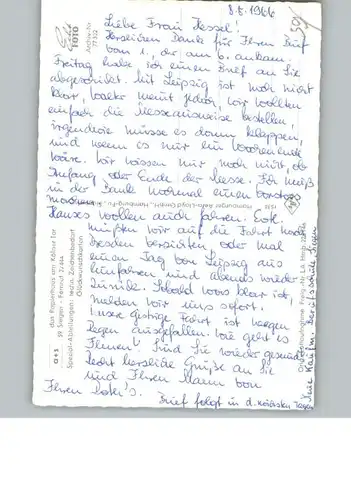 8.5.1966
Liebe Frau Hessel!
Herzlichen Dank für Ihren Brief
vom 1. der am 6. ankam.
Freitag habe ich einen Brief an Sie
abgeschickt. Mit Leipzig ist noch nicht
klar, Walter meint jedoch, wir wollten
einfach die Messeausweise bestellen,
irgendwie müsse es dann klappen,
und wenn es nur ein Wochenende
wäre. Wir wissen nur noch nicht, ob
Anfang oder Ende der Messe. Ich muß
in der Bank nochmal einen Vorstoß
machen.
Hauses wollen auch fahren. Evtl.
müßten wir auf die Fahrt nach
Dresden verzichten, oder mal
einen Tag von Leipzig aus
hinfahren und abends wieder
zurück. Sobald was klar ist,
melden wir uns sofort.
Unsere gestrige Fahrt ist wegen
Regen ausgefallen. Wie geht es
Ihnen? Sind Sie wieder gesund
Recht herzliche Grüße an Sie
und Ihren Mann von
Ihren
Brief folgt in d. nächsten Tagen
Echt
FOTO
Archiv-Nr.
das Papierhaus am Kölner Tor
59 Siegen - Fernruf
Spezial-Abteilungen: techn. Zeichenbedarf
Glückwunschkarten